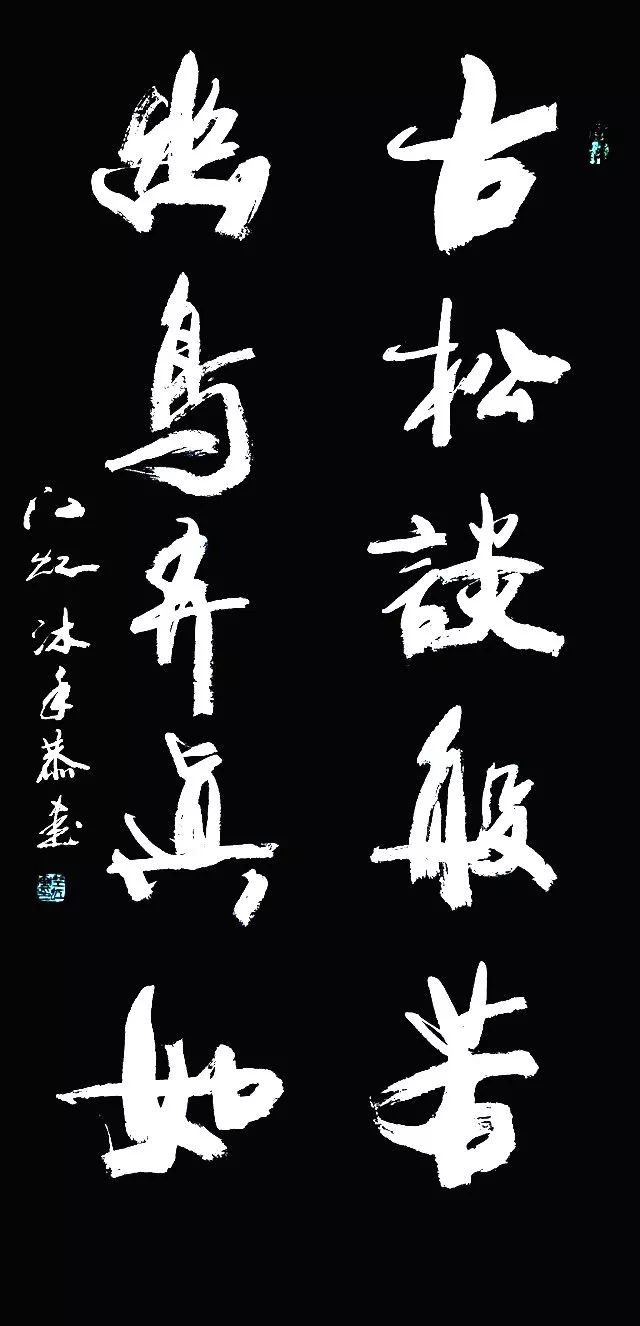 古松談般若
幽鳥弄眞如
沐手恭書